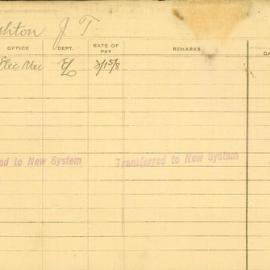 shton J. T.
OFFICE DEPT. RATE OF PAY REMARKS
Elec Mec 2/15/8
ed to New System Transferred to New System